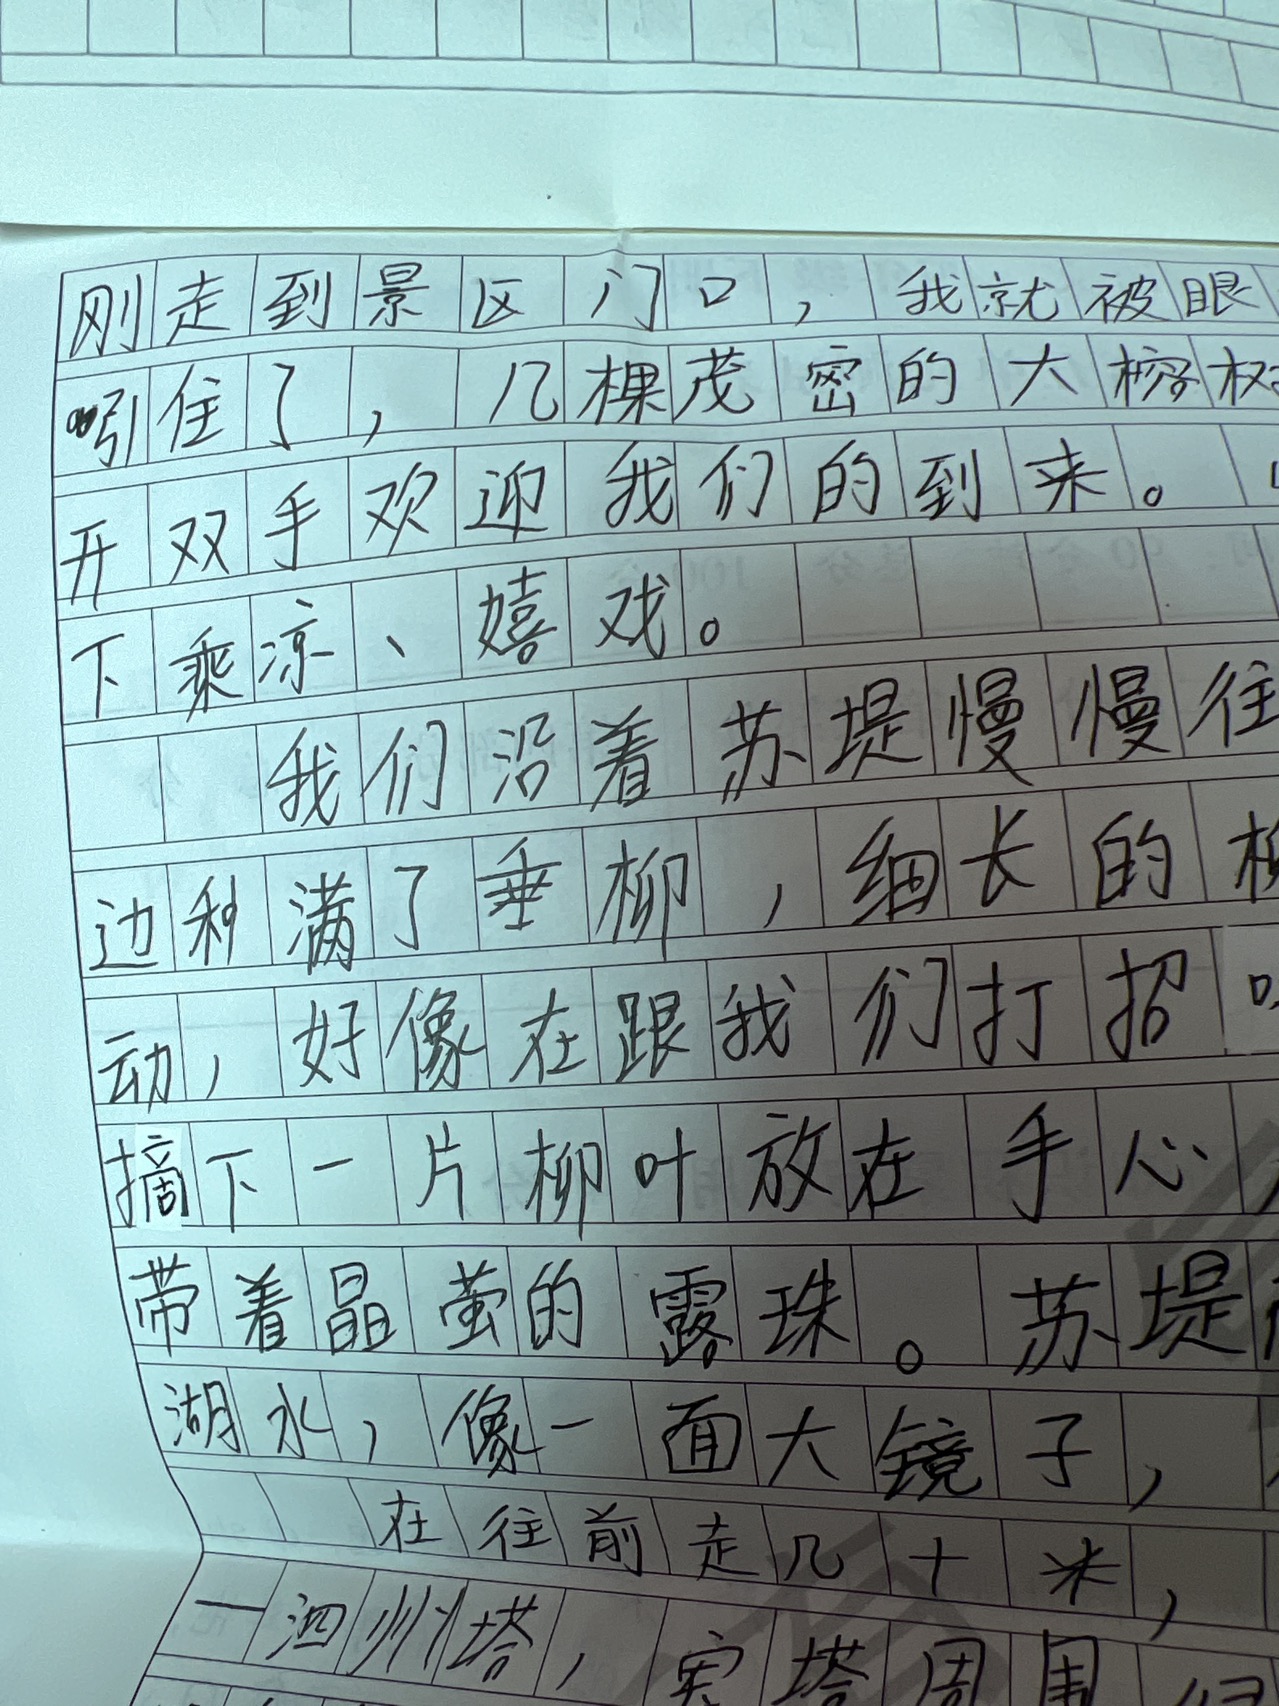 刚走到景区门口，我就被眼
引住了，几棵茂密的大榕树
开双手欢迎我们的到来。
下乘凉、嬉戏。
我们沿着苏堤慢慢往
边种满了垂柳，细长的柳
动，好像在跟我们打招
摘下一片柳叶放在手心
带着晶萤的露珠。苏堤
湖水，像一面大镜子，
在往前走几十米，
一泗州塔，宝塔周围